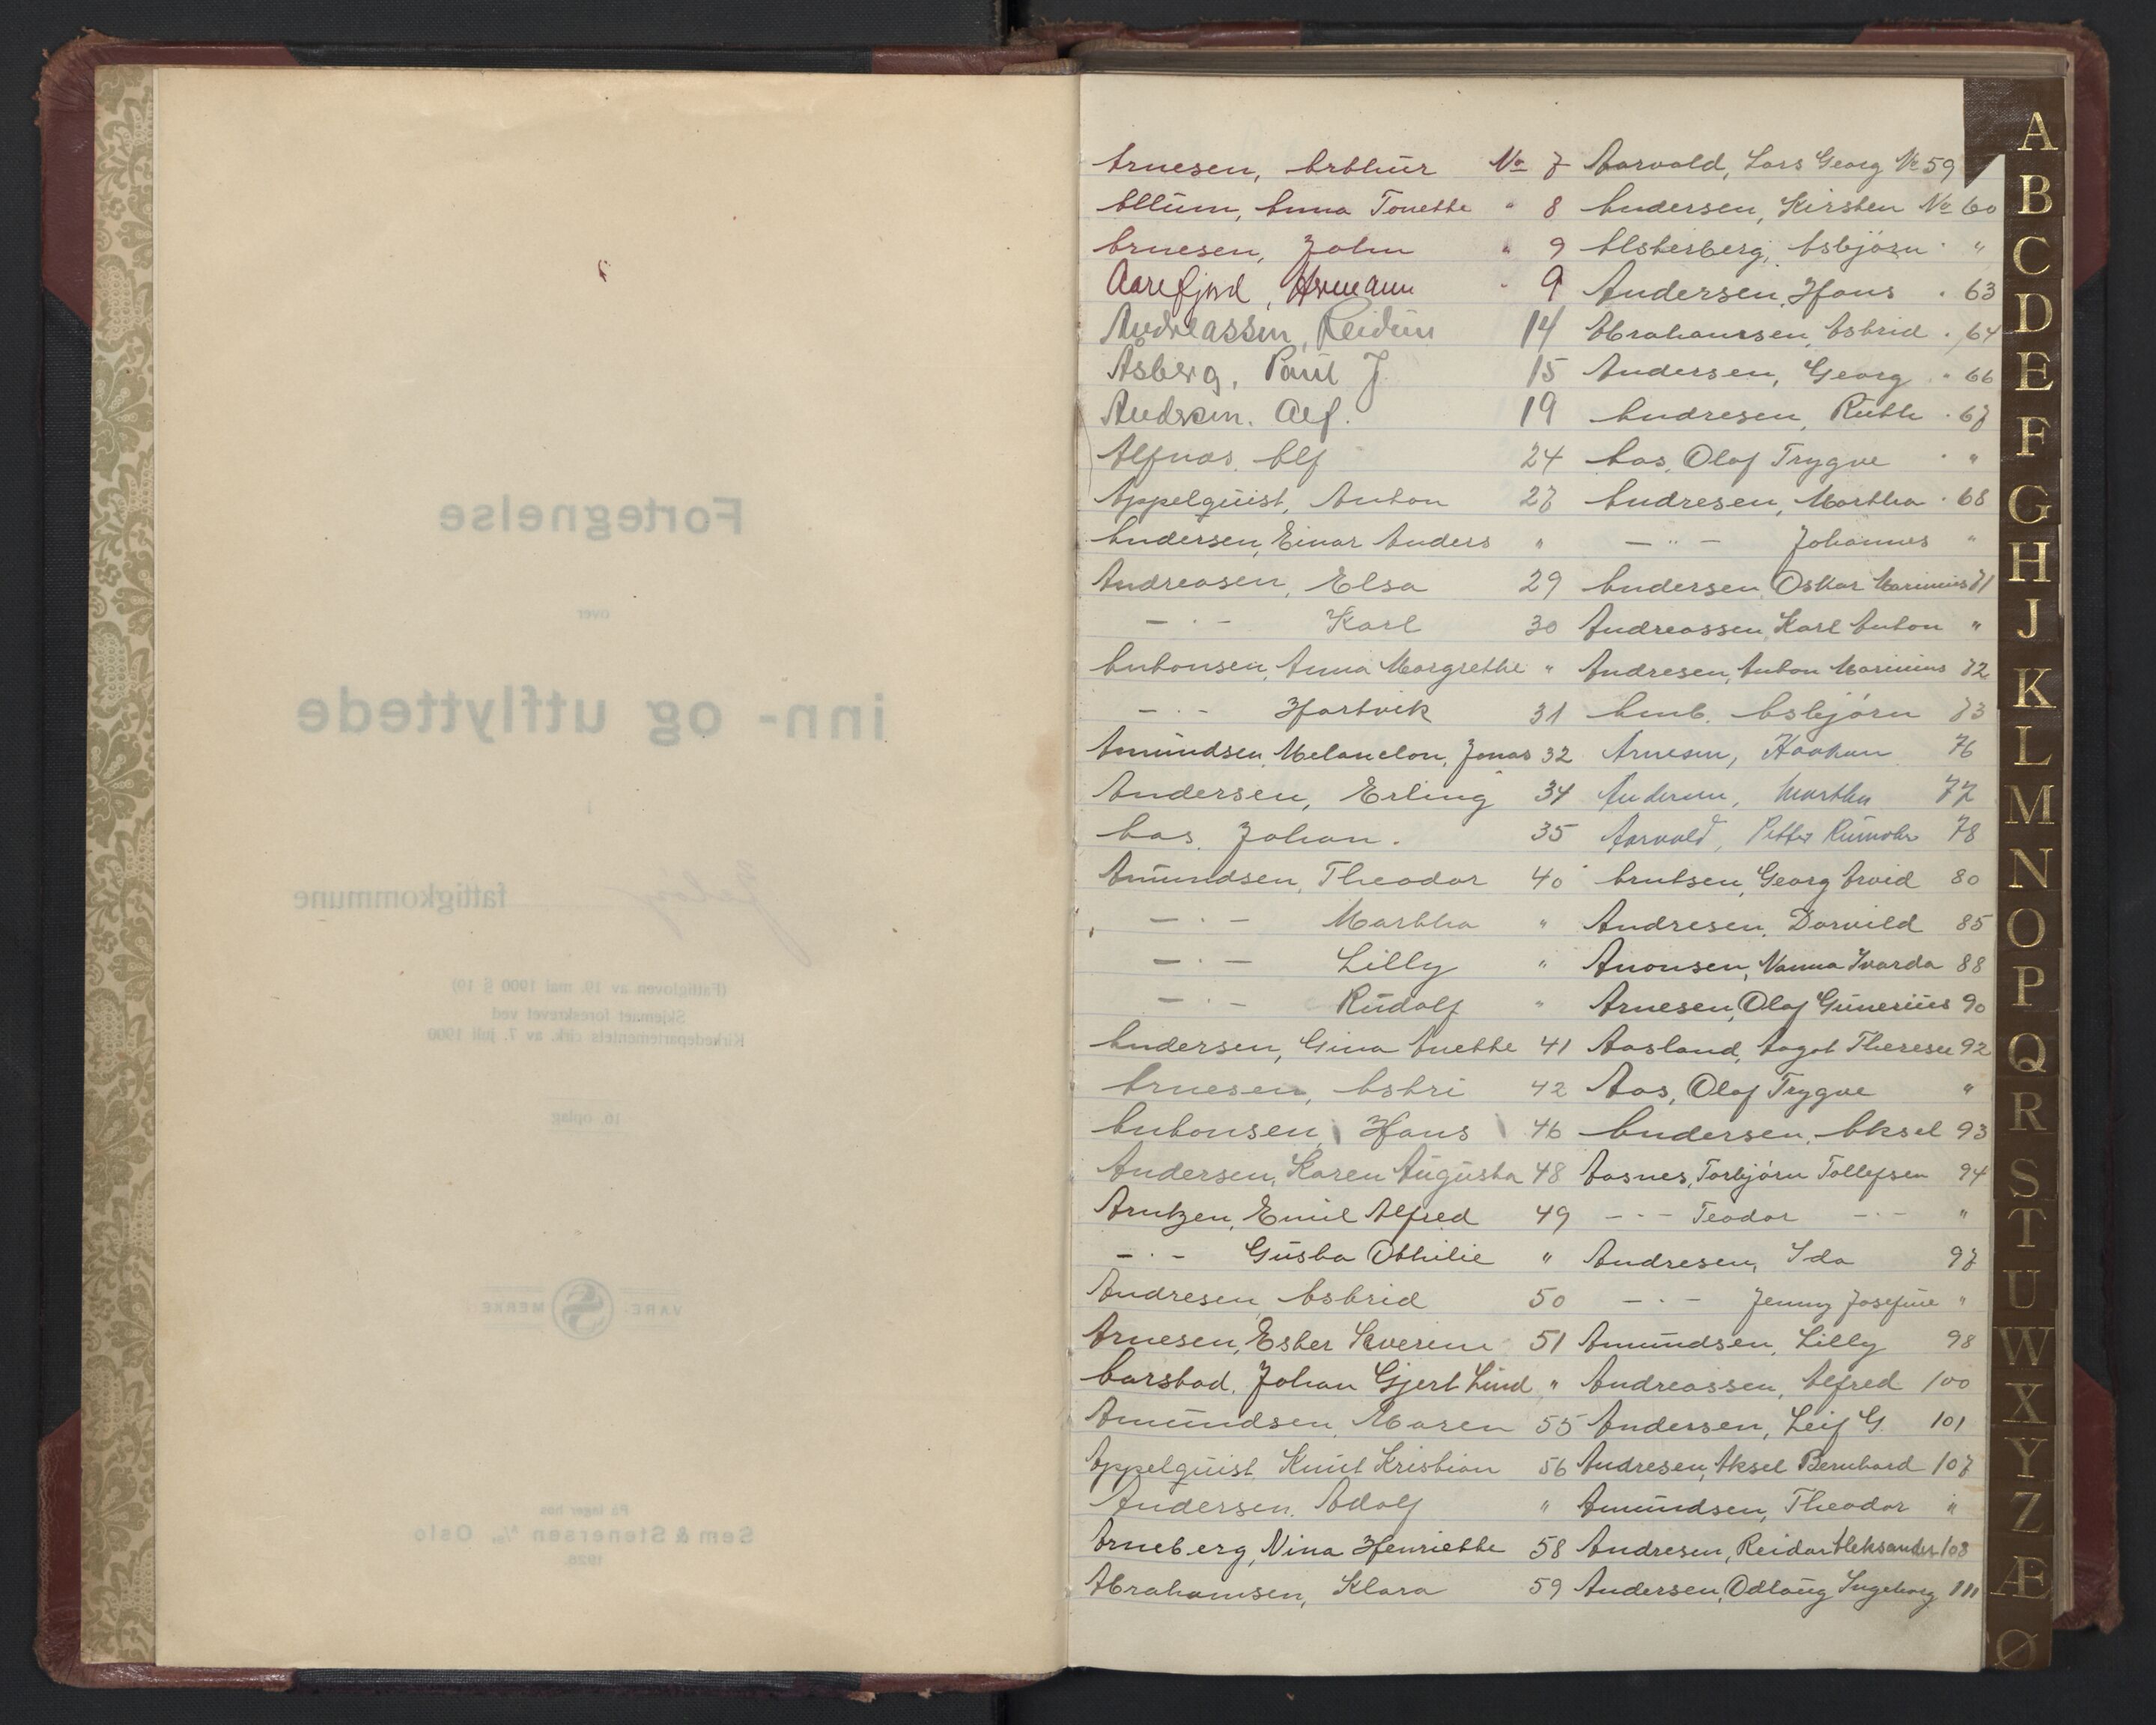 Fortegnelse
over
inn- og utflyttede
Jeløy fattigkommune
(Fattigloven av 19. mai 1900 § 19)
Skjemaet foreskrevet ved
Kirkedepartementets cirk. av 7. juli 1900
16. oplag
VARE MERKE
På lager hos
Sem & Stenersen A/S, Oslo
1926.
Arnesen, Arthur No 7
Allum, Anna Tonette " 8
Arnesen, John " 9
Aarefjord, Hermann " 9
Andreassen, Reidun 14
Åsberg, Paul J. 15
Andresen, Alf. 19
Alfnæs, Alf 24
Appelquist, Anton 27
Andersen, Einar Anders "
Andreasen, Elsa 29
— · — Karl 30
Antonsen, Anna Margrethe "
— · — Hartvik 31
Amundsen, Melancton, Jonas 32
Andersen, Erling 34
Aas, Johan. 35
Amundsen, Theodor 40
— · — Martha "
— · — Lilly "
— · — Rudolf "
Andersen, Gina Anette 41
Arnesen, Astri 42
Antonsen, Hans 46
Andersen, Karen Augusta 48
Arntzen, Emil Alfred 49
— · — Gusta Othilie "
Andresen, Astrid 50
Arnesen, Ester Severine 51
Aarstad, Johan Gjert Lind "
Amundsen, Maren 55
Appelquist, Knut Kristian 56
Andersen, Adolf "
Arneberg, Nina Henriette 58
Abrahamsen, Klara 59
Aarvold, Lars Georg No 59
Andersen, Kirsten No 60
Alsterberg, Asbjørn " "
Andersen, Hans " 63
Abrahamsen, Astrid " 64
Andersen, Georg " 66
Andresen, Ruth " 67
Aas, Olaf Trygve " "
Andresen, Martha " 68
— " — Johannes "
Andersen, Oskar Marinius 71
Andreassen, Karl Anton "
Andresen, Anton Marinius 72
Amb, Asbjørn 73
Arnesen, Haakon 76
Andersen, Martha 77
Aarvold, Petter Rumohr 78
Arntsen, Georg Arvid 80
Andresen, Dorvild 85
Anonsen, Nanna Ivarda 88
Arnesen, Olaf Gunerius 90
Aasland, Aagot Therese 92
Aas, Olaf Trygve "
Andersen, Aksel 93
Aasnes, Torbjørn Tollefsen 94
— · — Teodor — · — "
Andresen, Ida 97
— · — Jenny Josefine "
Amundsen, Lilly 98
Andreassen, Alfred 100
Andersen, Leif G. 101
Andresen, Aksel Bernhard 107
Amundsen, Theodor "
Andresen, Reidar Aleksander 108
Andersen, Odlaug Ingeborg 111
A
B
C
D
E
F
G
H
J
K
L
M
N
O
P
Q
R
S
T
U
W
X
Y
Z
Æ
Ø